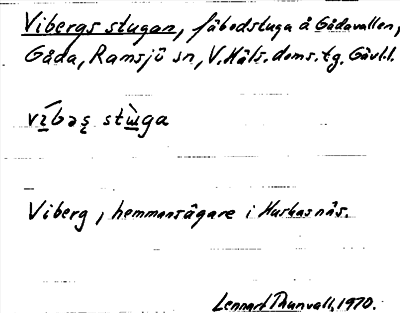 Vibergs stugan, fäbodstuga å Gådavallen,
Gåda, Ramsjö sn, V. Häls. doms. tg. Gävl.l.
Viberg, hemmansägare i Huskasnäs.
Lennart Thunvall, 1970.